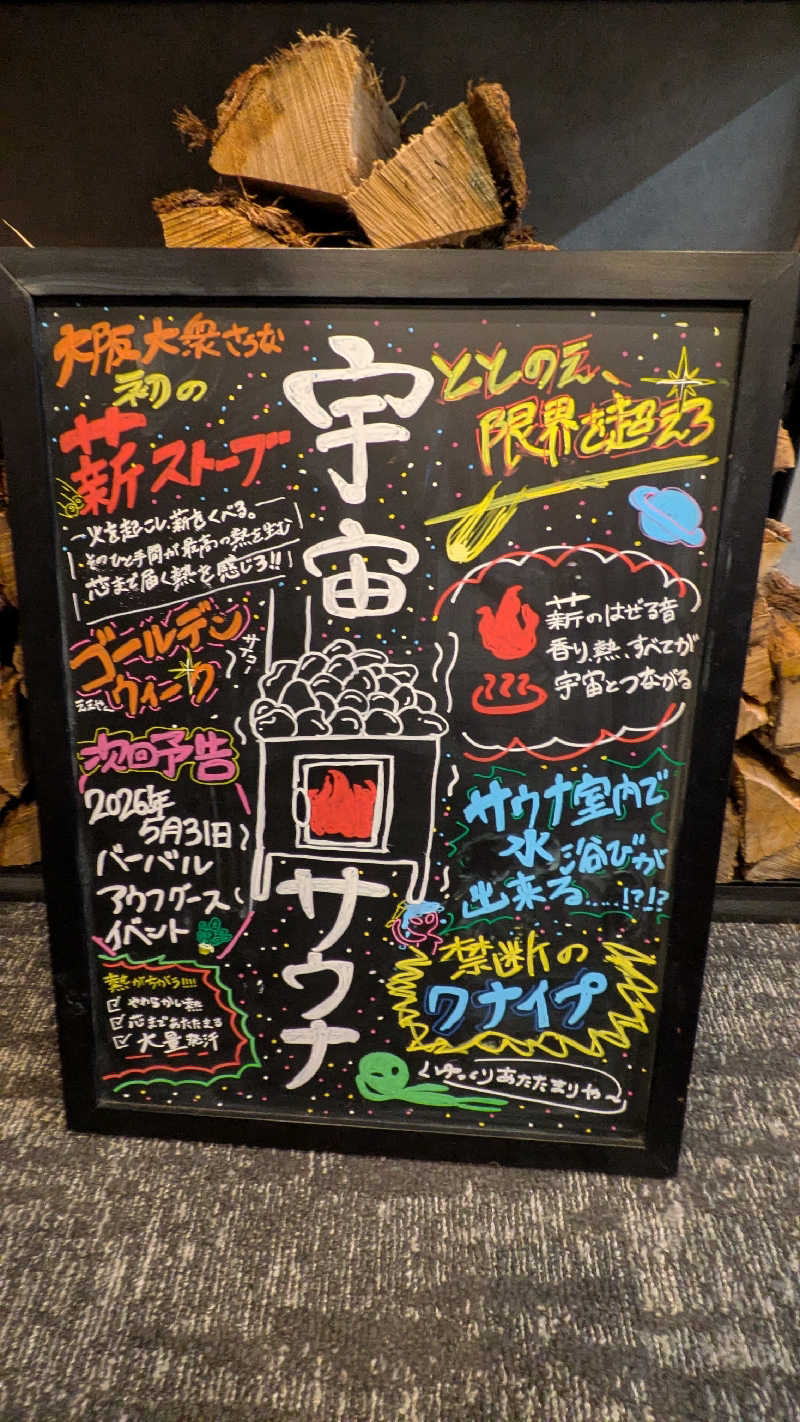 大阪大衆さうな
初の
薪ストーブ
火を起こし、薪をくべる。
そのひと手間が最高の熱を生む
芯まで届く熱を感じろ!!
ゴールデン
ウィーク
次回予告
2026年
5月31日
バーバル
アウフグース
イベント
熱がちがう!!!!
やわらかい熱
芯まであたたまる
大量発汗
宇宙
サウナ
ととのえ、
限界を超えろ
薪のはぜる音
香り、熱、すべてが
宇宙とつながる
サウナ室内で
水浴びが
出来る……!?!?
禁断の
ワナイプ
ゆっくりあたたまりや〜